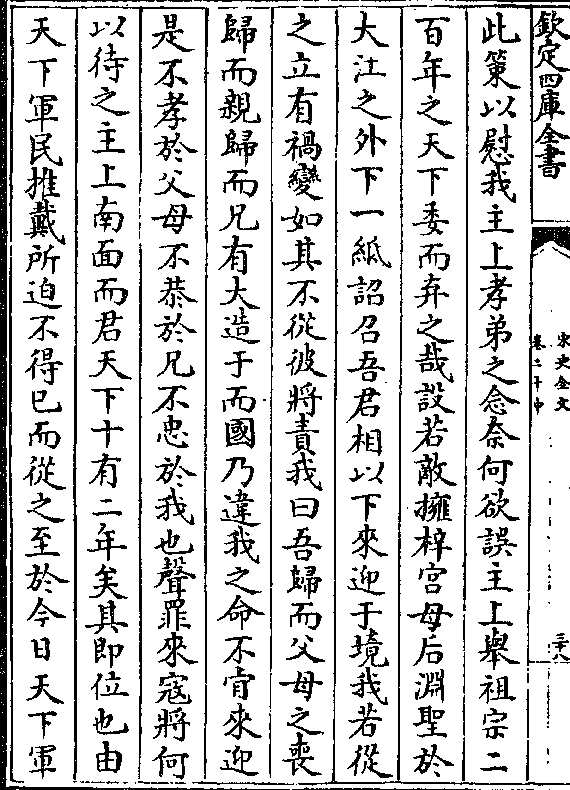 欽定四庫全書
宋史全文
卷二十中
三十八
此策以慰我主上孝弟之念奈何欲誤主上舉祖宗二
百年之天下委而弃之哉設若敵擁梓宫母后淵聖於
大江之外下一紙詔召吾君相以下來迎于境我若從
之立有禍變如其不從彼將責我曰吾歸而父母之喪
歸而親歸而兄有大造于而國乃違我之命不肯來迎
是不孝於父母不恭於兄不忠於我也聲罪來寇將何
以待之主上南面而君天下十有二年矣其即位也由
天下軍民推戴所迫不得已而從之至於今日天下軍